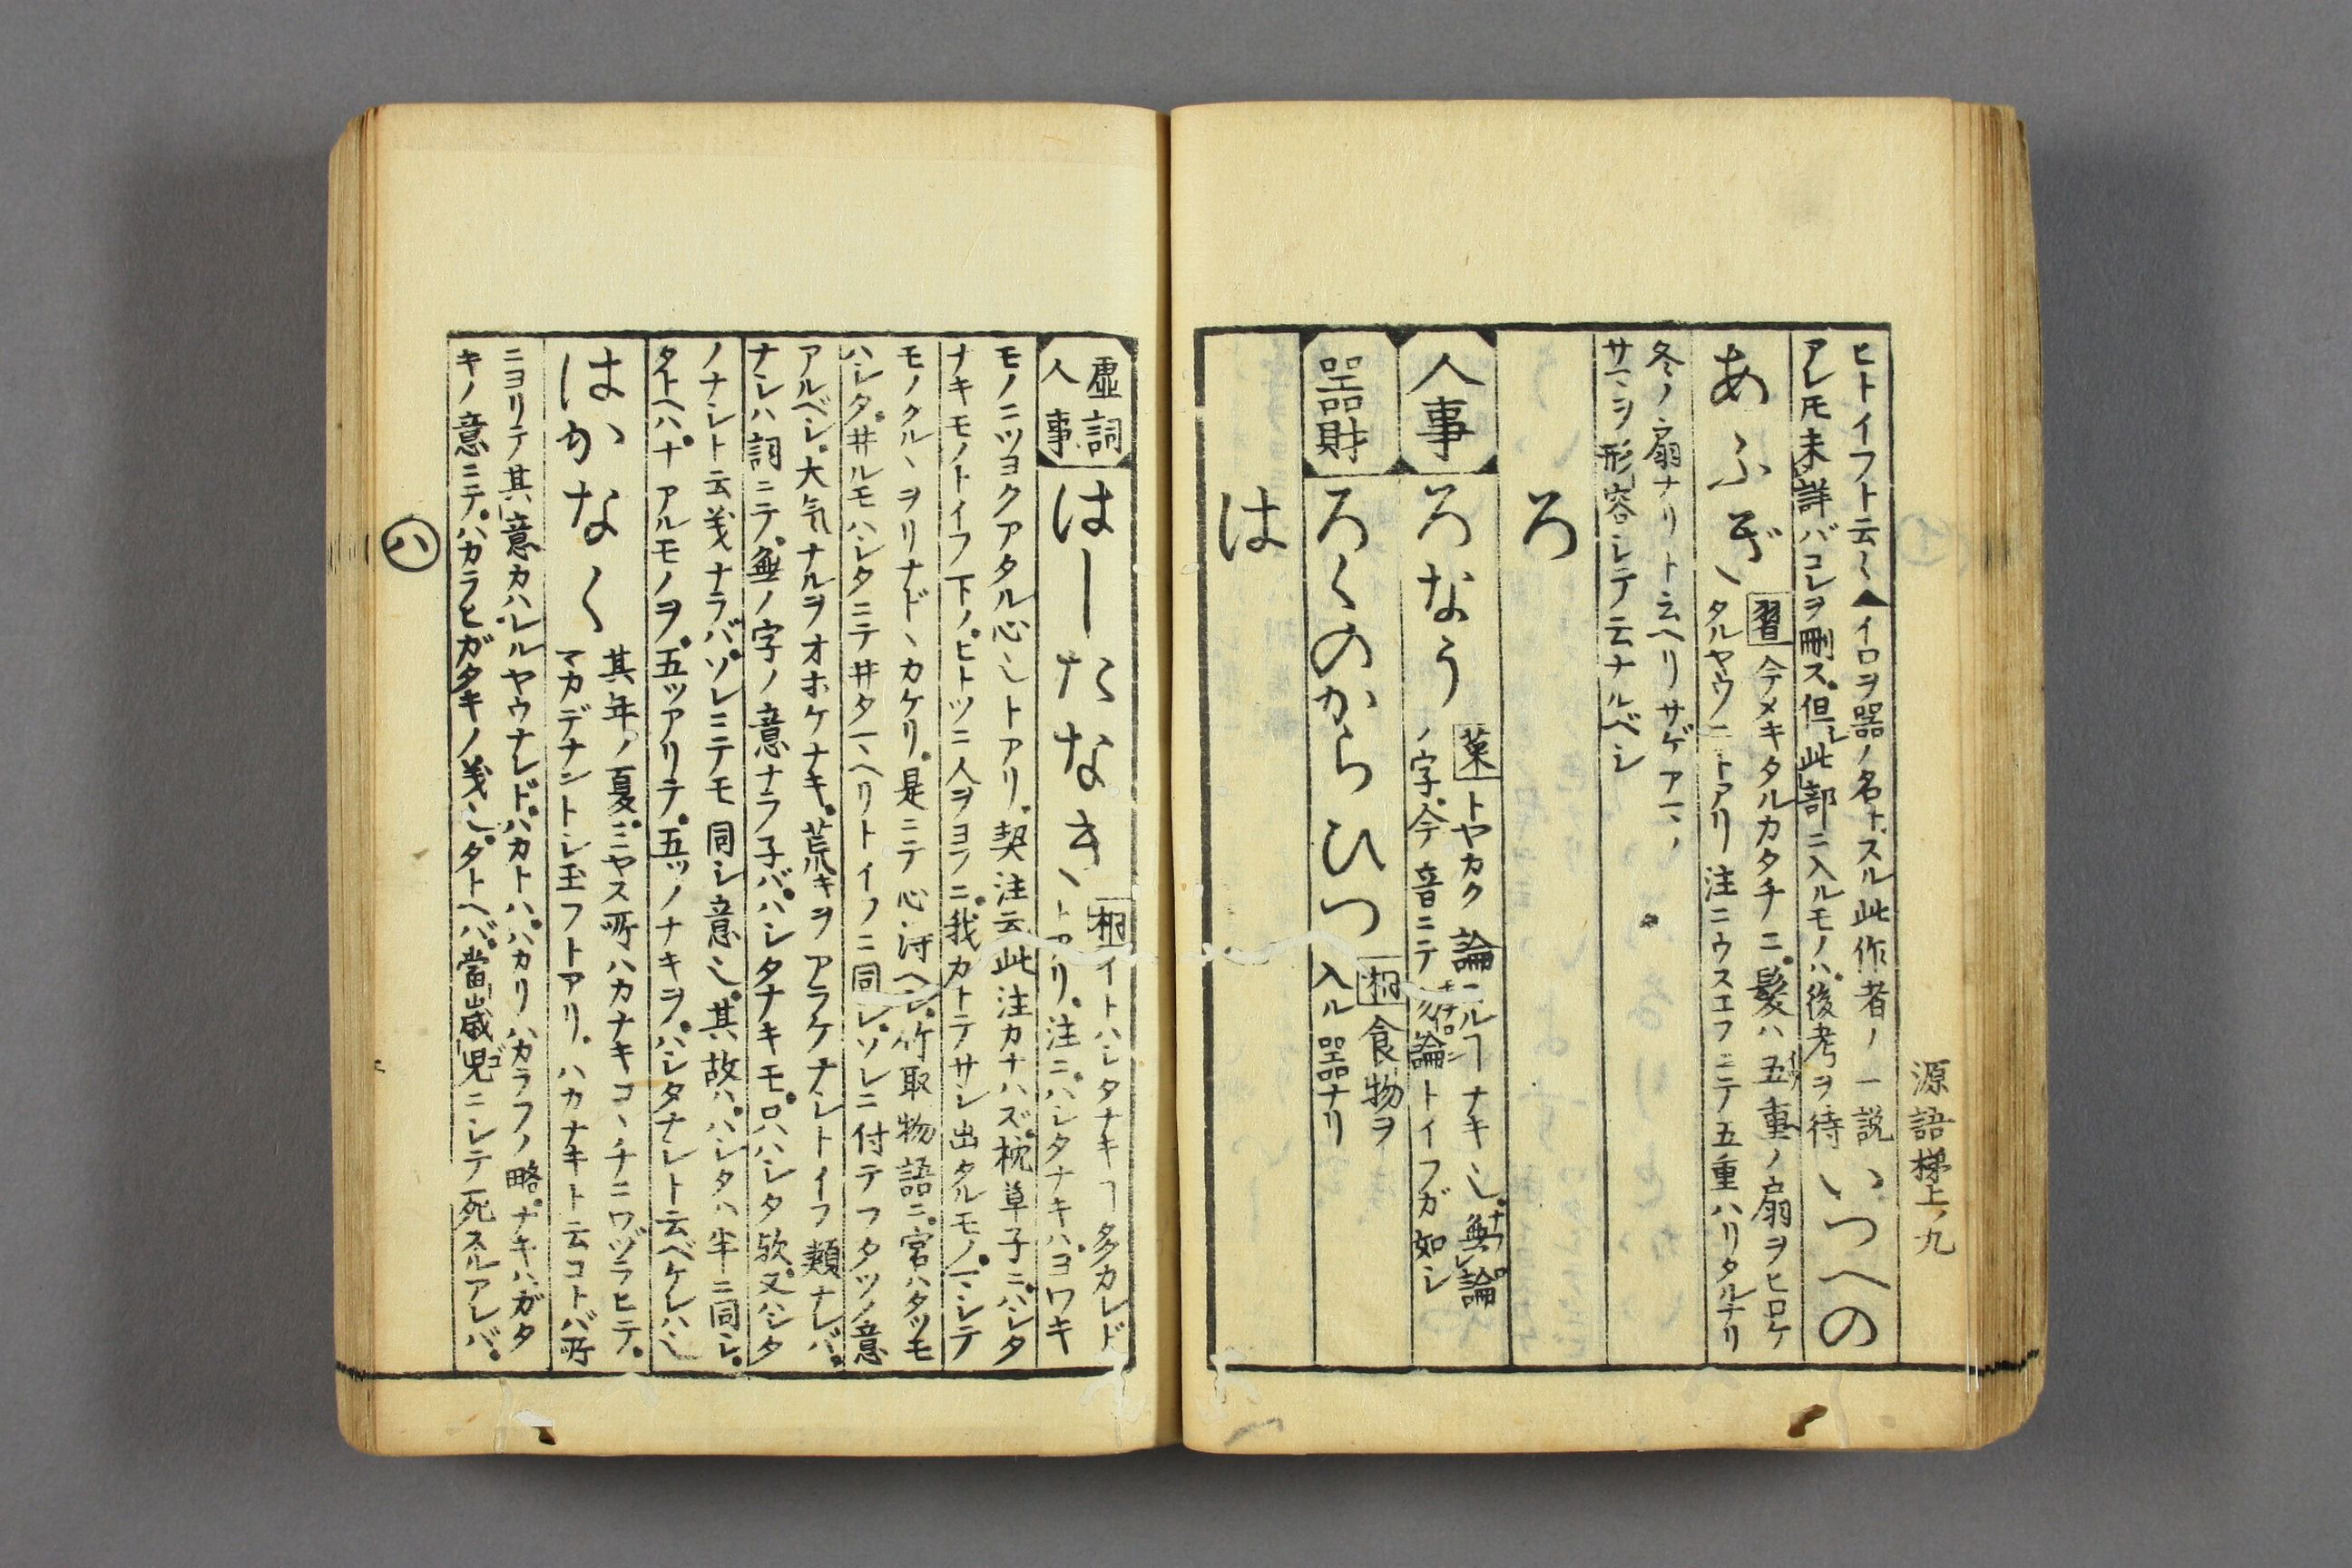 源語梯上ノ九
ヒトイフト云〻▲イロヲ器ノ名トスル此作者ノ一説
アレ𪜈未詳バコレヲ刪ス但此部ニ入ルモノハ後考ヲ待
いつへの
あふぎ
習今メキタルカタチニ髪ハ五重ノ扇ヲヒロケ
タルヤウニトアリ注ニウスエフニテ五重ハリタルナリ
冬ノ扇ナリト云ヘリサゲアマノ
サマヲ形容シテ云ナルベシ
ろ
人事
ろなう
葉トヤカク論スルヿナキ也無論
ノ字今音ニテ勿論トイフガ如シ
器財
ろくのからひつ
桐食物ヲ
入ル器ナリ
は
虚詞
人事
はしたなき
桐イトハシタナキヿ多カレド
トアリ注ニハシタナキハヨワキ
モノニツヨクアタル心也トアリ契注云此注カナハズ枕草子ニハシタ
ナキモノトイフ下ノヒトツニ人ヲヨフニ我カトテサシ出タルモノマシテ
モノクルヽヲリナドヽカケリ是ニテ心得ヘシ竹取物語ニ宮ハタツモ
ハシタ井ルモハシタニテ井タマヘリトイフニ同シソレニ付テフタツノ意
アルベシ大気ナルヲオホケナキ荒キヲアラケナシトイフ類ナレバ
ナシハ詞ニテ無ノ字ノ意ナラ子バハシタナキモ只ハシタ欤又ハシタ
ノナシト云義ナラバソレニテモ同シ意也其故ハハシタハ半ニ同シ
タトヘハ十アルモノヲ五ツアリテ五ツノナキヲハシタナシト云ベケレハ也
はかなく
其年ノ夏ミヤス所ハカナキコヽチニワヅラヒテ
マカデナントシ玉フトアリハカナキト云コトバ所
ニヨリテ其意カハレルヤウナレドハカトハハカリハカラフノ略ナキハガタ
キノ意ニテハカラヒガタキノ義也タトヘバ當歳児ニシテ死スルアレバ
八